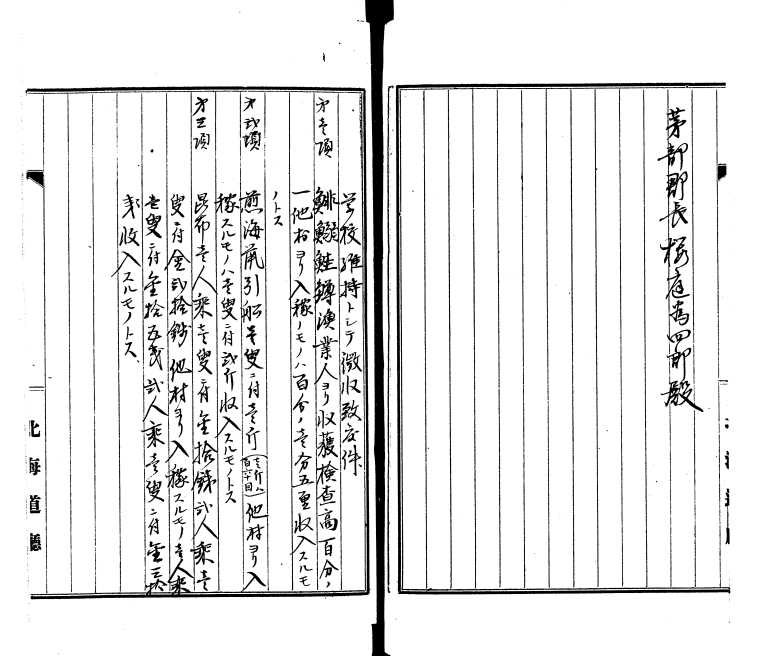 茅部郡長桜庭為四郎殿
学校維持トシテ徴収致度件
第壱項 鯡鰯鮭鱒漁業人ヨリ収獲検査高百分ノ
一他村ヨリ入稼ノモノハ百分ノ壱分五厘収入スルモ
ノトス
第弐項 煎海鼠引船壱叟ニ付壱斤(壱斤ハ百六十目)他村ヨリ入
稼スルモノハ壱叟ニ付弐斤収入スルモノトス
第三項 昆布壱人乗壱叟ニ付金拾銭弐人乗壱
叟ニ付金弐拾銭他村ヨリ入稼スルモノ壱人乗
壱叟ニ付金拾五銭弐人乗壱叟ニ付金三拾
銭収入スルモノトス
北海道廳